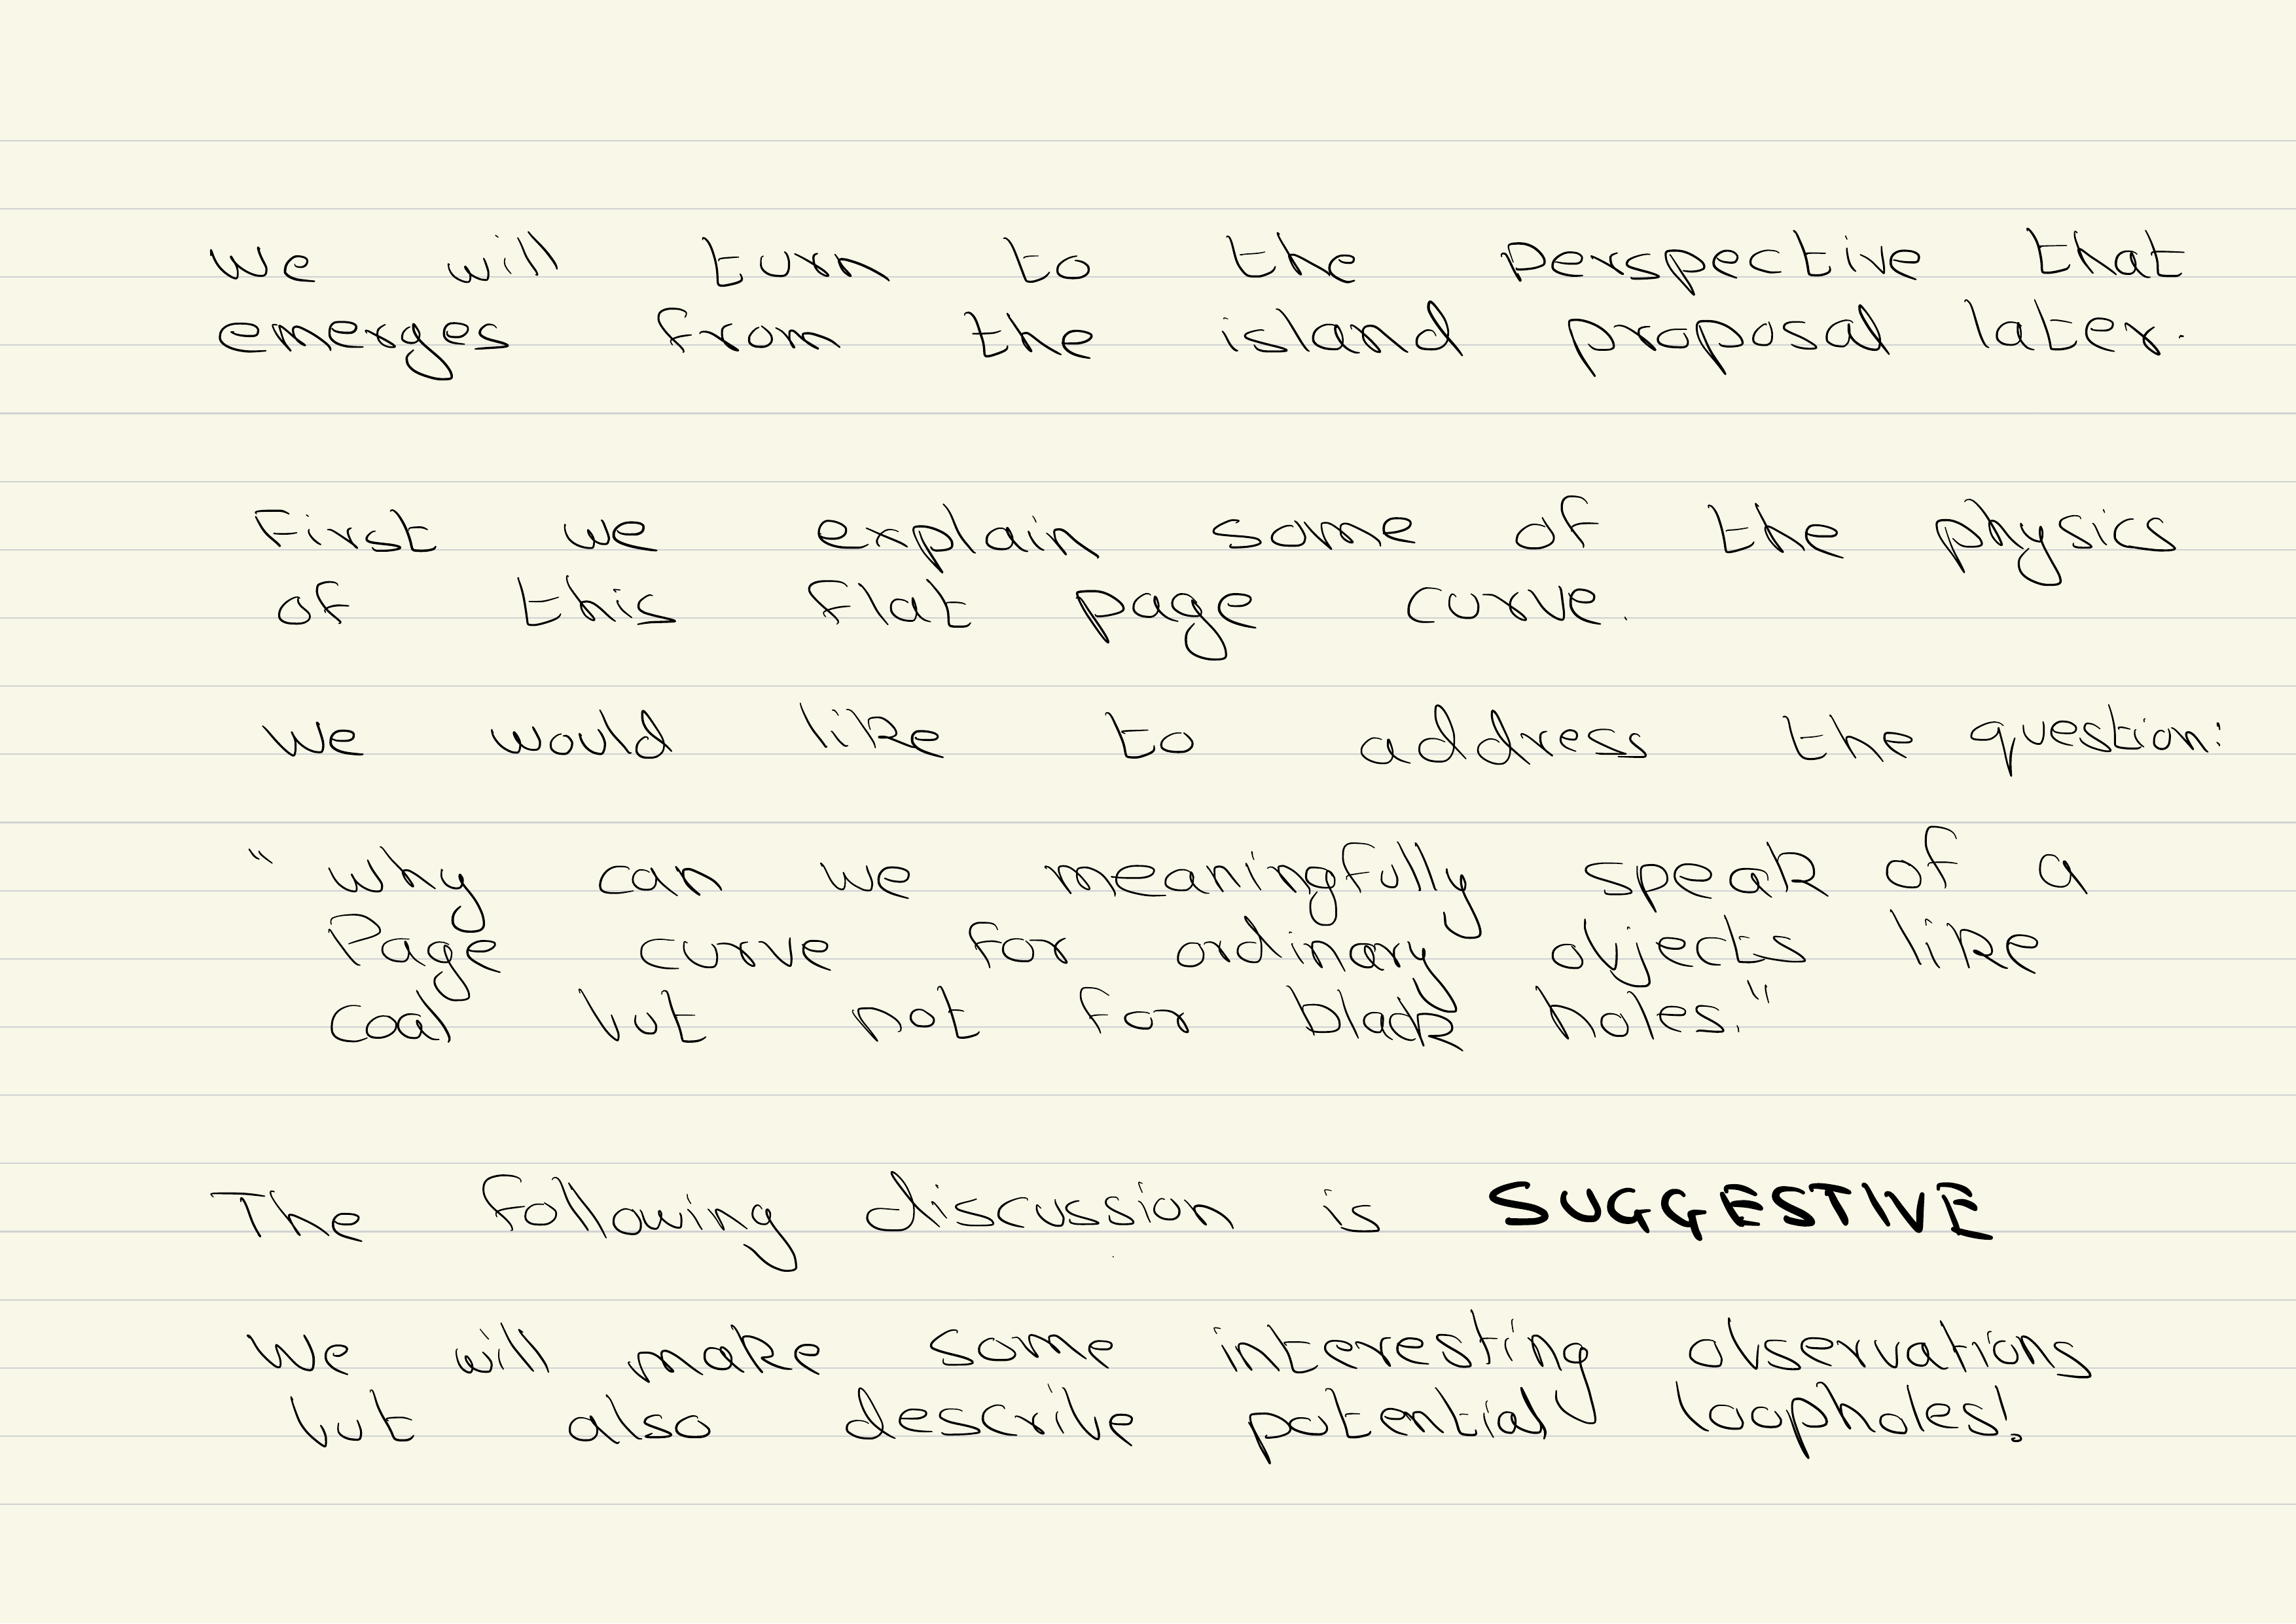 We will turn to the perspective that
emerges from the island proposal later.
First we explain some of the physics
of this flat page curve.
We would like to address the question:
"Why can we meaningfully speak of a
Page curve for ordinary objects like
coal but not for black holes."
The following discussion is SUGGESTIVE
We will make some interesting observations
but also describe potential loopholes!